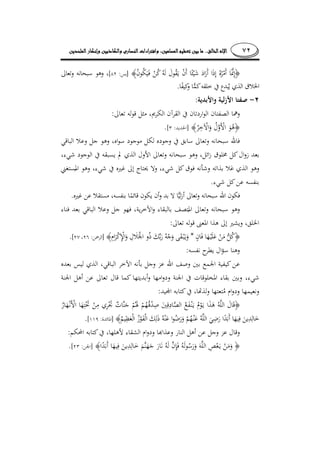 ٧٢ الإله الخالق.. ما بين تعظيم المسلمين، وافتراءات النصارى واللادينيين وإنكار الملحدين
﴿إِنَّمَا أَمْرُهُ إِذَا أَرَادَ شَيْئًا أَنْ يَقُولَ لَهُ كُنْ فَيَكُونُ﴾ [يس: ٨٢]، وهو سبحانه وتعالى
الخلاق الذي يُبدع في خلقه كمًّا وكيفًا.
٢- صفتا الأزلية والأبدية:
وهما الصفتان الواردتان في القرآن الكريم، مثل قوله تعالى:
﴿هُوَ الْأَوَّلُ وَالْآخِرُ﴾ [الحديد: ٣].
فالله سبحانه وتعالى سابق في وجوده لكل موجود سواه، وهو جل وعلا الباقي
بعد زوال كل مخلوق زائل، وهو سبحانه وتعالى الأول الذي لم يسبقه في الوجود شيء،
وهو الذي علا بذاته وشأنه فوق كل شيء، ولا يحتاج إلى غيره في شيء، وهو المستغني
بنفسه عن كل شيء.
فكون الله سبحانه وتعالى أزليًّا لا بد وأن يكون قائمًا بنفسه، مستقلا عن غيره.
وهو سبحانه وتعالى المتصف بالبقاء والآخرية، فهو جل وعلا الباقي بعد فناء
الخلق، ويشير إلى هذا المعنى قوله تعالى:
﴿كُلُّ مَنْ عَلَيْهَا فَانٍ وَيَبْقَى وَجْهُ رَبِّكَ ذُو الْجَلَالِ وَالْإِكْرَامِ﴾ [الرحمن: ٢٦، ٢٧].
وهنا سؤال يطرح نفسه:
عن كيفية الجمع بين وصف الله عز وجل بأنه الآخر الباقي، الذي ليس بعده
شيء، وبين بقاء المخلوقات في الجنة ودوامها وأبديتها كما قال تعالى عن أهل الجنة
ونعيمها ودوام مُتعتها ولذتها، في كتابه المجيد:
﴿قَالَ اللَّهُ هَذَا يَوْمُ يَنْفَعُ الصَّادِقِينَ صِدْقُهُمْ لَهُمْ جَنَّاتٌ تَجْرِي مِنْ تَحْتِهَا الْأَنْهَارُ
خَالِدِينَ فِيهَا أَبَدًا رَضِيَ اللَّهُ عَنْهُمْ وَرَضُوا عَنْهُ ذَلِكَ الْفَوْزُ الْعَظِيمُ﴾ [المائدة: ١١٩].
وقال عز وجل عن أهل النار وعذابها ودوام الشقاء لأهلها، في كتابه المحكم:
﴿وَمَنْ يَعْصِ اللَّهَ وَرَسُولَهُ فَإِنَّ لَهُ نَارَ جَهَنَّمَ خَالِدِينَ فِيهَا أَبَدًا﴾ [الجن: ٢٣].